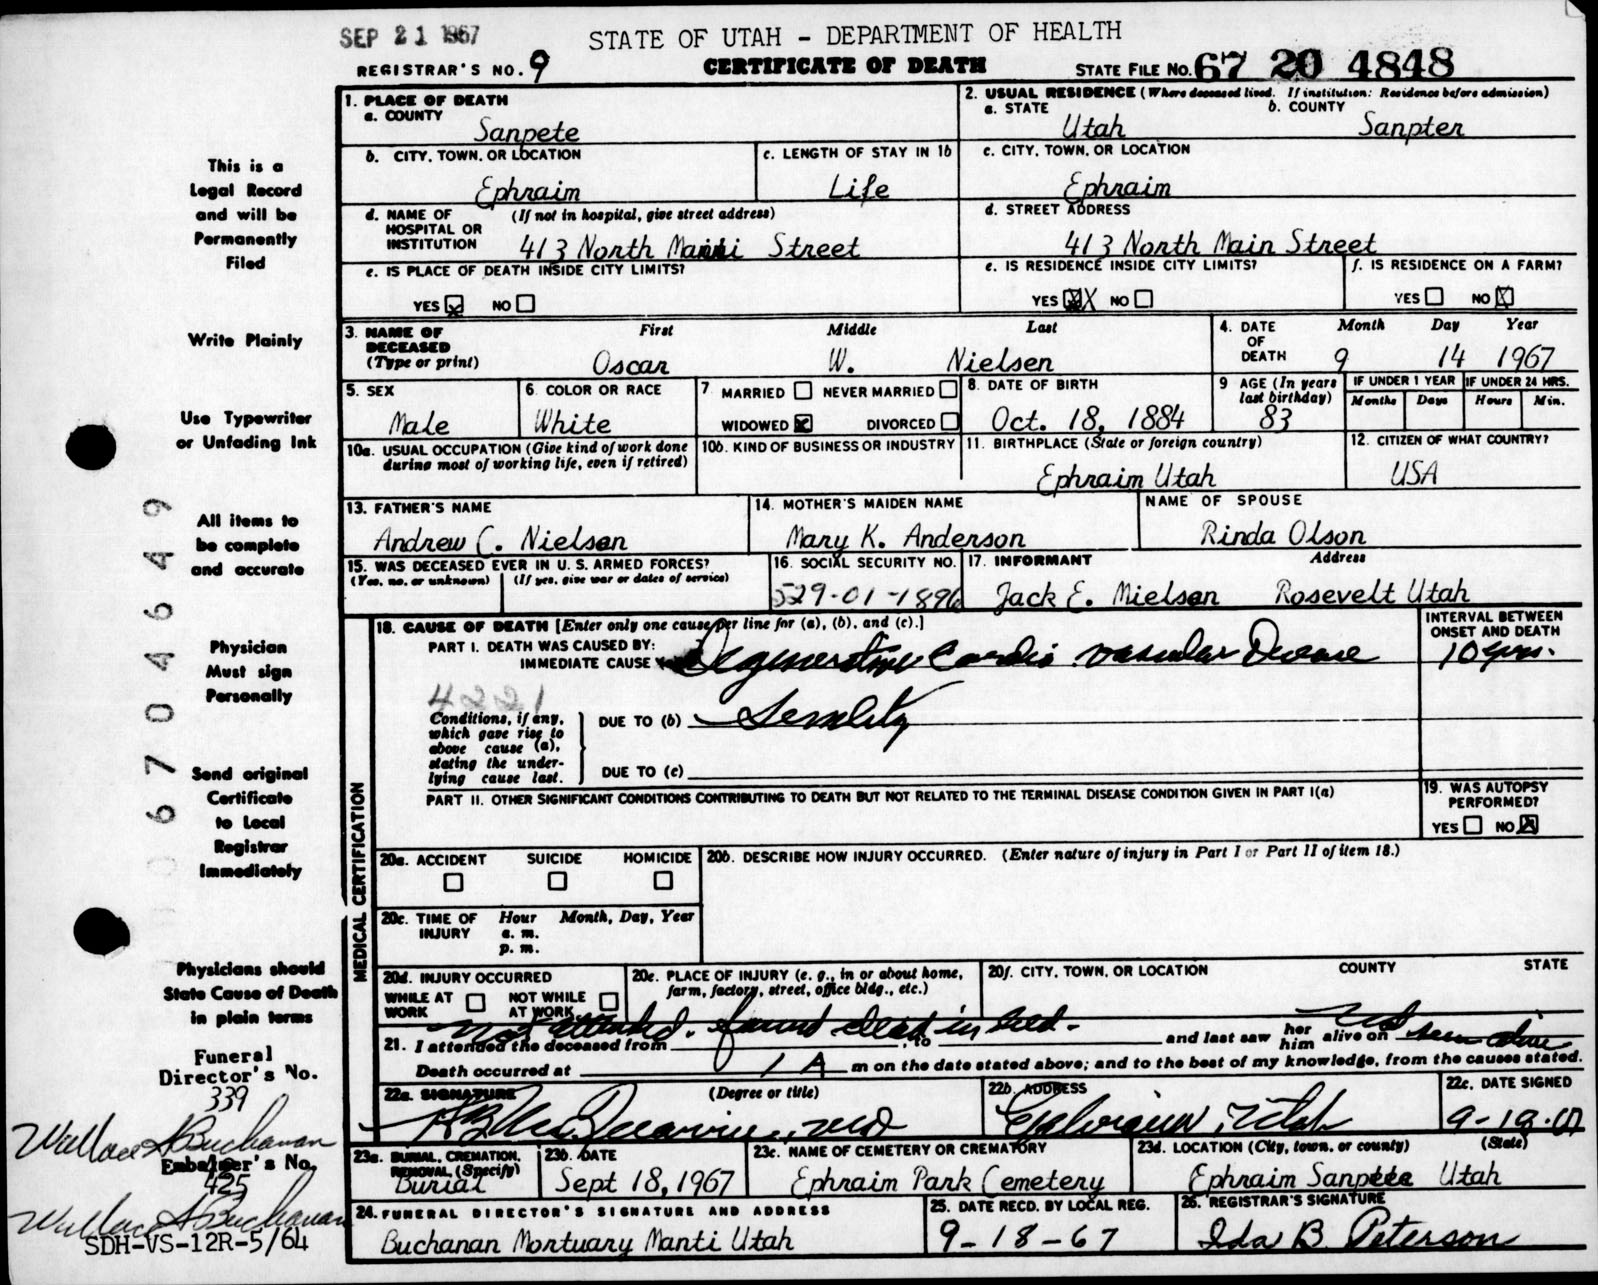 SEP 21 1967
STATE OF UTAH - DEPARTMENT OF HEALTH
REGISTRAR'S NO. 9
CERTIFICATE OF DEATH
STATE FILE NO. 67 20 4848
1. PLACE OF DEATH
a. COUNTY
Sanpete
2. USUAL RESIDENCE (Where deceased lived. If institution: Residence before admission)
a. STATE
b. COUNTY
Utah
Sanpter
b. CITY, TOWN, OR LOCATION
Ephraim
c. LENGTH OF STAY IN 1b
Life
c. CITY, TOWN, OR LOCATION
Ephraim
d. NAME OF (If not in hospital, give street address)
HOSPITAL OR
INSTITUTION
413 North Street
d. STREET ADDRESS
413 North Main Street
e. IS PLACE OF DEATH INSIDE CITY LIMITS?
YES X NO
e. IS RESIDENCE INSIDE CITY LIMITS?
YES X NO
f. IS RESIDENCE ON A FARM?
YES NO X
3. NAME OF
DECEASED
(Type or print)
First Middle Last
Oscar W. Nielsen
4. DATE
OF
DEATH
Month Day Year
9 14 1967
5. SEX
Male
6. COLOR OR RACE
White
7 MARRIED NEVER MARRIED
WIDOWED X DIVORCED
8. DATE OF BIRTH
Oct. 18, 1884
9 AGE (In years
last birthday)
83
IF UNDER 1 YEAR
Months Days
IF UNDER 24 HRS.
Hours Min.
10a. USUAL OCCUPATION (Give kind of work done
during most of working life, even if retired)
10b. KIND OF BUSINESS OR INDUSTRY
11. BIRTHPLACE (State or foreign country)
Ephraim Utah
12. CITIZEN OF WHAT COUNTRY?
USA
13. FATHER'S NAME
Andrew C. Nielsen
14. MOTHER'S MAIDEN NAME
Mary K. Anderson
NAME OF SPOUSE
Rinda Olson
15. WAS DECEASED EVER IN U. S. ARMED FORCES?
(Yes, no, or unknown) (If yes, give war or dates of service)
16. SOCIAL SECURITY NO.
529-01-1896
17. INFORMANT Address
Jack E. Nielsen Rosevelt Utah
MEDICAL CERTIFICATION
18. CAUSE OF DEATH [Enter only one cause per line for (a), (b), and (c).]
PART I. DEATH WAS CAUSED BY:
IMMEDIATE CAUSE
Degenerative Cardio vascular Disease
INTERVAL BETWEEN
ONSET AND DEATH
10 yrs.
4221
Conditions, if any,
which gave rise to
above cause (a),
stating the under-
lying cause last.
DUE TO (b) Senility
DUE TO (c)
PART II. OTHER SIGNIFICANT CONDITIONS CONTRIBUTING TO DEATH BUT NOT RELATED TO THE TERMINAL DISEASE CONDITION GIVEN IN PART I(a)
19. WAS AUTOPSY
PERFORMED?
YES NO X
20a. ACCIDENT SUICIDE HOMICIDE
20b. DESCRIBE HOW INJURY OCCURRED. (Enter nature of injury in Part I or Part II of item 18.)
20c. TIME OF
INJURY
Hour Month, Day, Year
a. m.
p. m.
20d. INJURY OCCURRED
WHILE AT
WORK
NOT WHILE
AT WORK
20e. PLACE OF INJURY (e. g., in or about home,
farm, factory, street, office bldg., etc.)
20f. CITY, TOWN, OR LOCATION COUNTY STATE
Not attended. found dead in bed.
Not seen alive
21. I attended the deceased from , to and last saw her him alive on
Death occurred at 1 A m on the date stated above; and to the best of my knowledge, from the causes stated.
22a. SIGNATURE (Degree or title)
22b. ADDRESS
Ephraim, Utah
22c. DATE SIGNED
23a. BURIAL, CREMATION,
REMOVAL (Specify)
Burial
23b. DATE
Sept 18, 1967
23c. NAME OF CEMETERY OR CREMATORY
Ephraim Park Cemetery
23d. LOCATION (City, town, or county) (State)
Ephraim Sanpete Utah
24. FUNERAL DIRECTOR'S SIGNATURE AND ADDRESS
Buchanan Mortuary Manti Utah
25. DATE RECD. BY LOCAL REG.
9-18-67
26. REGISTRAR'S SIGNATURE
Ida B. Peterson
This is a
Legal Record
and will be
Permanently
Filed
Write Plainly
Use Typewriter
or Unfading Ink
All items to
be complete
and accurate
Physician
Must sign
Personally
Send original
Certificate
to Local
Registrar
Immediately
Physicians should
State Cause of Death
in plain terms
Funeral
Director's No.
339
Wallace A Buchanan
Embalmer's No.
425
Wallace A Buchanan
SDH-VS-12R-5/64
6704649